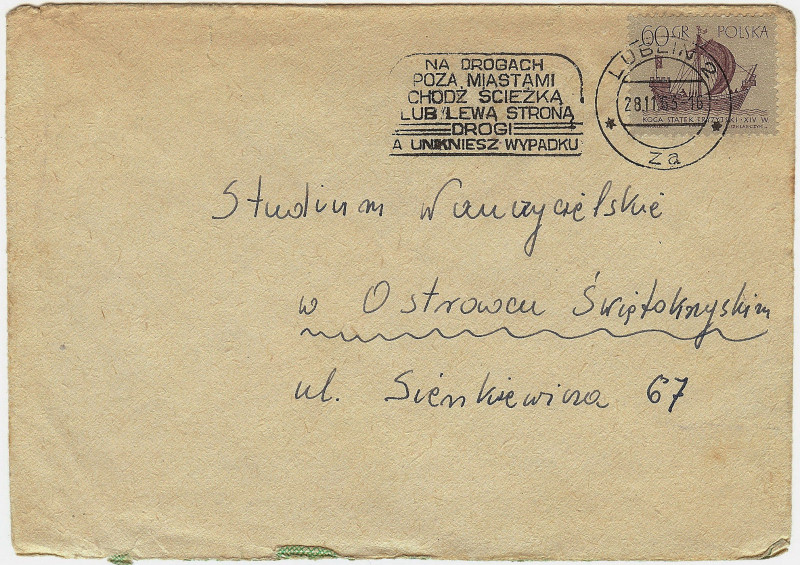 NA DROGACH
POZA MIASTAMI
CHODŹ ŚCIEŻKĄ
LUB LEWĄ STRONĄ
DROGI
A UNIKNIESZ WYPADKU
60 GR POLSKA
KOGA STATEK FRYZYJSKI - XIV W
LUBLIN 2
28.11.63-16
za
Studium Nauczycielskie
w Ostrowcu Świętokrzyskim
ul. Sienkiewicza 67